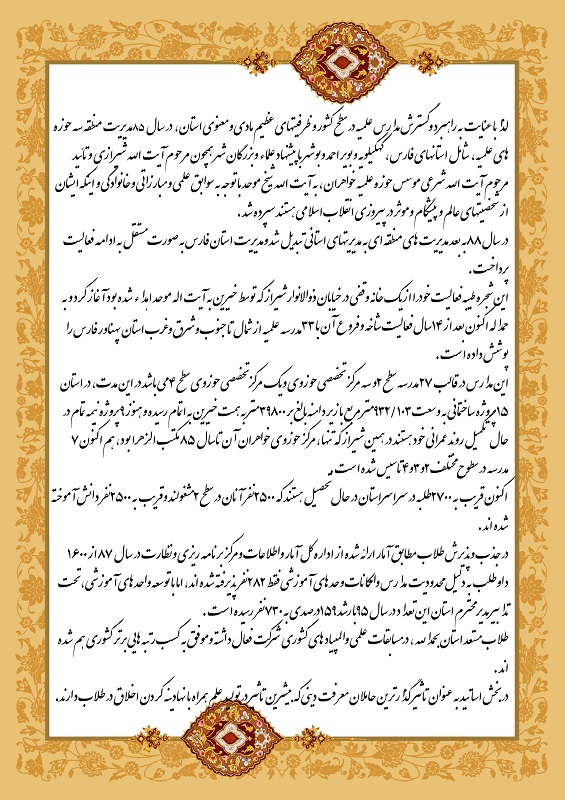 لذا با عنایت به راهبرد و گسترش مدارس علمیه در سطح کشور و ظرفیتهای عظیم مادی و معنوی استان، در سال ۸۵ مدیریت منطقه سه حوزه
های علمیه، شامل استانهای فارس، کهگیلویه و بویر احمد و بوشهر با پیشنهاد علماء و بزرگان شهر همچون مرحوم آیت الله شیرازی و تائید
مرحوم آیت الله شرعی موسس حوزه علمیه خواهران، به آیت الله شیخ موحد با توجه به سوابق علمی و مبارزاتی و خانوادگی و اینکه ایشان
از شخصیتهای عالم و پیشگام و موثر در پیروزی انقلاب اسلامی هستند سپرده شد.
در سال ۸۸ به بعد مدیریت های منطقه ای به مدیریتهای استانی تبدیل شد و مدیریت استان فارس به صورت مستقل به ادامه فعالیت
پرداخت.
این شجره طیبه فعالیت خود را از یک خانه وقفی در خیابان ذوالانوار شیراز که توسط خیرین به آیت اله موحد اهداء شده بود آغاز کرد و به
حمد اله اکنون بعد از ۱۴ سال فعالیت شاخه و فروع آن با ۳۳ مدرسه علمیه از شمال تا جنوب و شرق و غرب استان پهناور فارس را
پوشش داده است.
این مدارس در قالب ۲۷ مدرسه سطح ۲ و سه مرکز تخصصی حوزوی و یک مرکز تخصصی حوزوی سطح ۴ می باشد در این مدت، در استان
۱۵ پروژه ساختمانی به وسعت ۹۳۲/۱۰۳ متر مربع با زیر دامنه بالغ بر ۳۹۸۰۰ متر به همت خیرین به اتمام رسیده و هنوز ۹ پروژه نیمه تمام در
حال تکمیل روند عمرانی خود هستند در همین شیراز که تنها، مرکز حوزوی خواهران آن تا سال ۸۵ مکتب الزهرا بود، هم اکنون ۷
مدرسه در سطوح مختلف ۲ و ۳ و ۴ تاسیس شده است.
اکنون قریب به ۲۷۰۰ طلبه در سراسر استان در حال تحصیل هستند که ۲۵۰۰ نفر آنان در سطح ۲ مشغولند و قریب به ۲۵۰۰ نفر دانش آموخته
شده اند.
در جذب و پذیرش طلاب مطابق آمار ارائه شده از اداره کل آمار و اطلاعات و مرکز برنامه ریزی و نظارت در سال ۸۷ از ۱۶۰۰
داوطلب به دلیل محدودیت مدارس و امکانات واحدهای آموزشی فقط ۲۸۲ نفر پذیرفته شده اند، اما با توسعه واحدهای آموزشی، تحت
تدابیر مدیر محترم استان این تعداد در سال ۹۵ با رشد ۱۵۹ درصدی به ۷۳۰ نفر رسیده است.
طلاب مستعد استان بحمدالله، در مسابقات علمی و المپیادهای کشوری شرکت فعال داشته و موفق به کسب رتبه هایی برتر کشوری هم شده
اند.
در بخش اساتید به عنوان تاثیرگذارترین حاملان معرفت دینی که بیشترین تاثیر در تولید علم همراه با نهادینه کردن اخلاق در طلاب دارند.